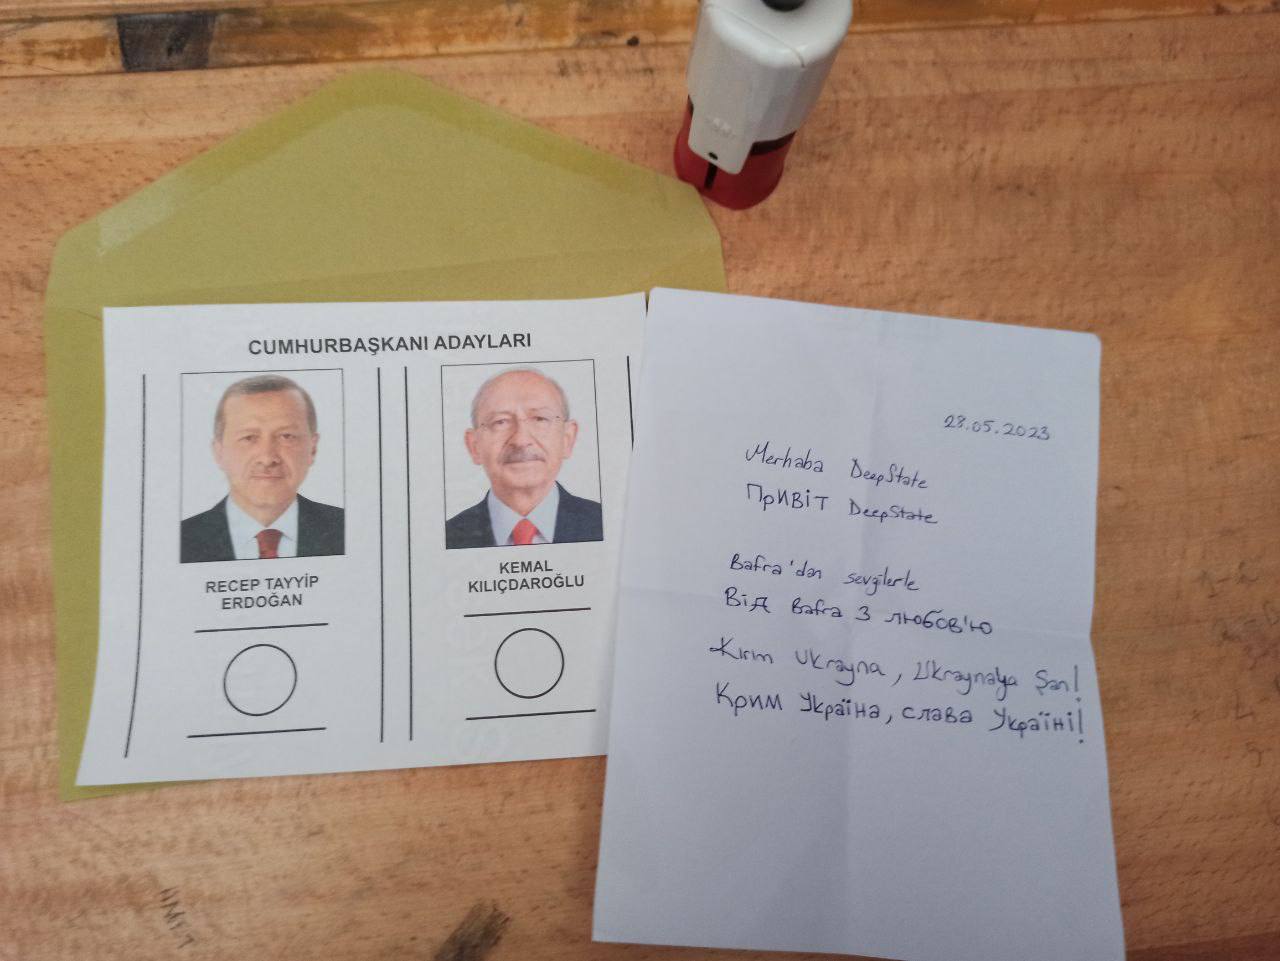 CUMHURBAŞKANI ADAYLARI
RECEP TAYYİP
ERDOĞAN
KEMAL
KILIÇDAROĞLU
28.05.2023
Merhaba DeepState
Привіт DeepState
Bafra'dan sevgilerle
Від Bafra з любов'ю
Kırım Ukrayna, Ukraynaya Şan!
Крим Україна, слава Україні!